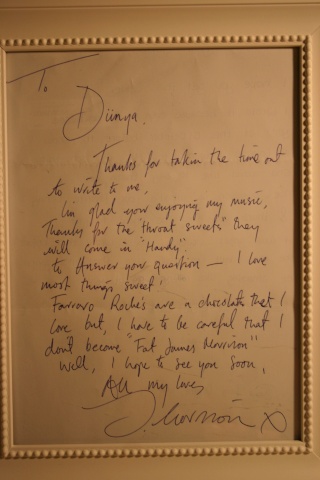 To
Dünya.
Thanks for takin the time out
to write to me,
I'm glad your enjoying my music,
Thanks for the "throat sweets" they
will come in "Handy"
to Answer your question — I love
most things sweet!
Farroro Roche's are a chocolate that I
love but, I have to be careful that I
don't become "Fat James Morrison"
Well, I hope to see you soon,
All my love,
J. Morrison x